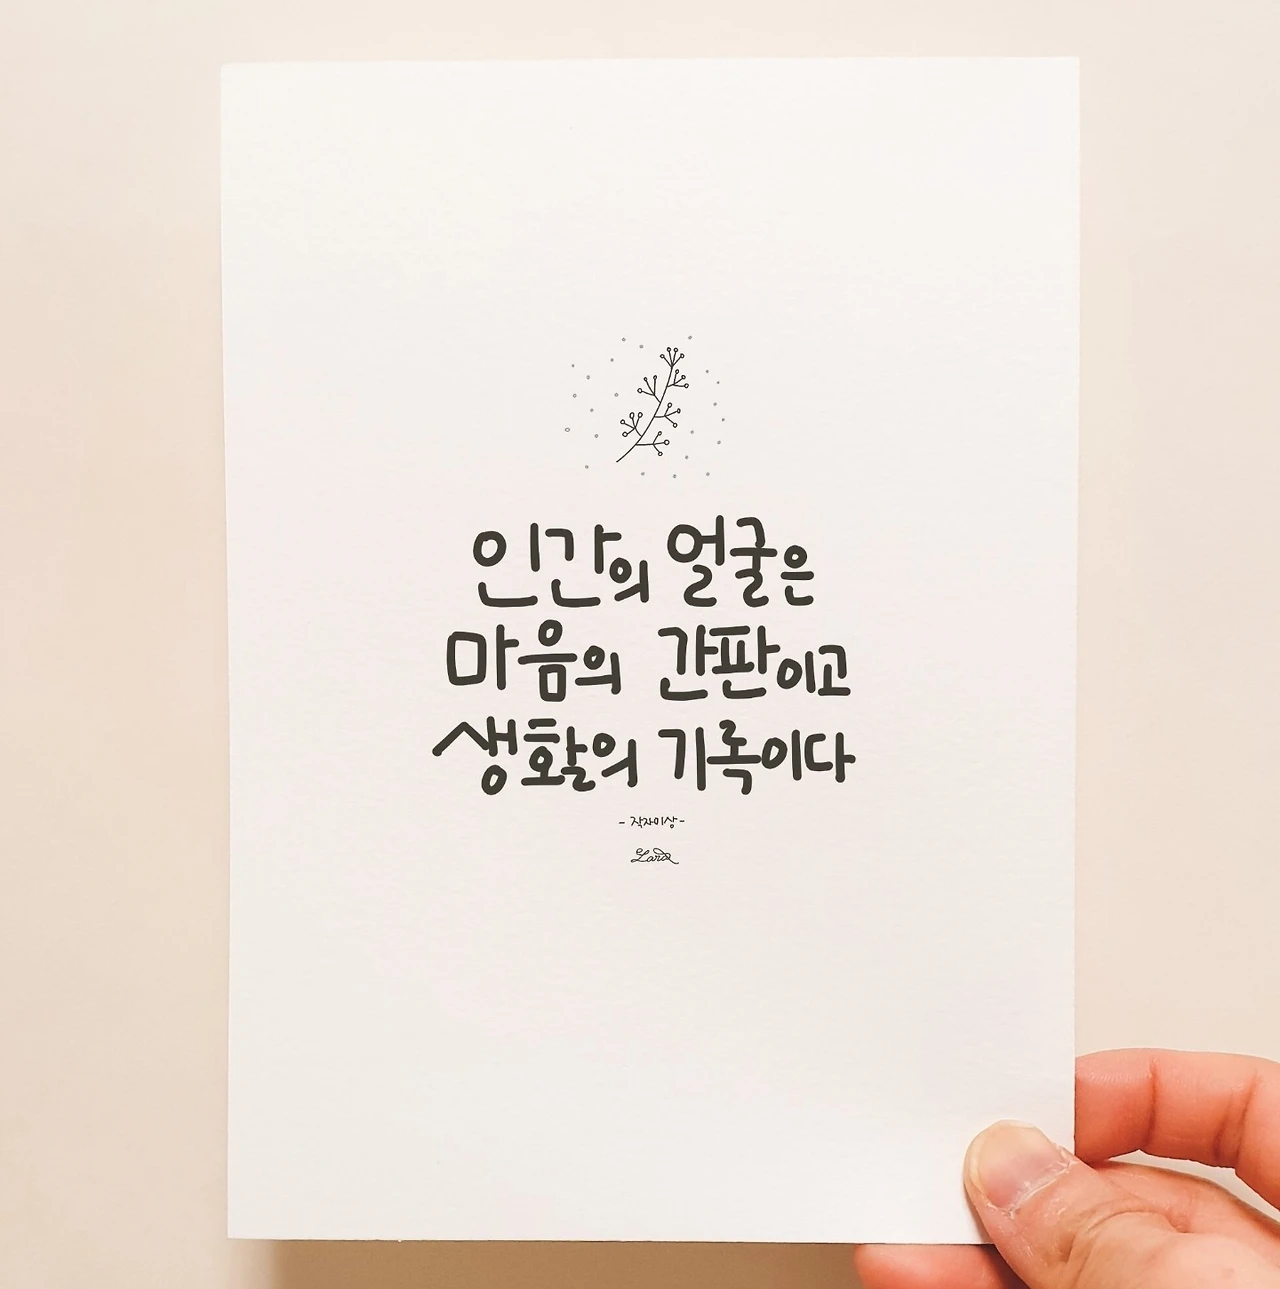 인간의 얼굴은
마음의 간판이고
생활의 기록이다
- 작자미상 -
Lara